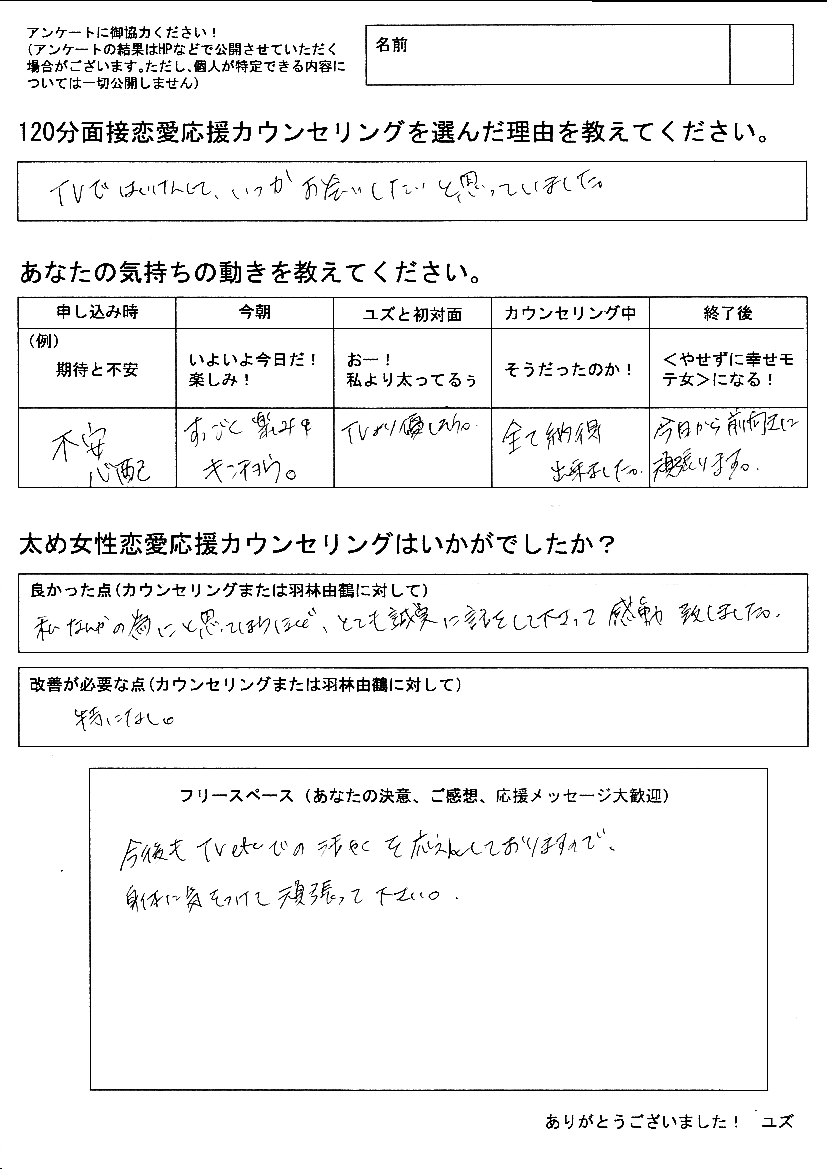 アンケートに御協力ください！
（アンケートの結果はHPなどで公開させていただく
場合がございます。ただし、個人が特定できる内容に
ついては一切公開しません）
名前
120分面接恋愛応援カウンセリングを選んだ理由を教えてください。
TVではいけんして、いつかお会いしたいと思っていました。
あなたの気持ちの動きを教えてください。
申し込み時 今朝 ユズと初対面 カウンセリング中 終了後
（例）
期待と不安
いよいよ今日だ！
楽しみ！
おー！
私より太ってるぅ
そうだったのか！
＜やせずに幸せモ
テ女＞になる！
不安
心配
すっごく楽しみ＆
キンチョウ。
TVより優しそう。
全て納得
出来ました。
今日から前向きに
頑張ります。
太め女性恋愛応援カウンセリングはいかがでしたか？
良かった点（カウンセリングまたは羽林由鶴に対して）
私なんかの為にと思ってしまうほど、とても誠実に話をして下さって感動致しました。
改善が必要な点（カウンセリングまたは羽林由鶴に対して）
特になし。
フリースペース（あなたの決意、ご感想、応援メッセージ大歓迎）
今後もTV etcでの活やくを応えんしておりますので、
身体に気をつけて頑張って下さい。
ありがとうございました！ ユズ